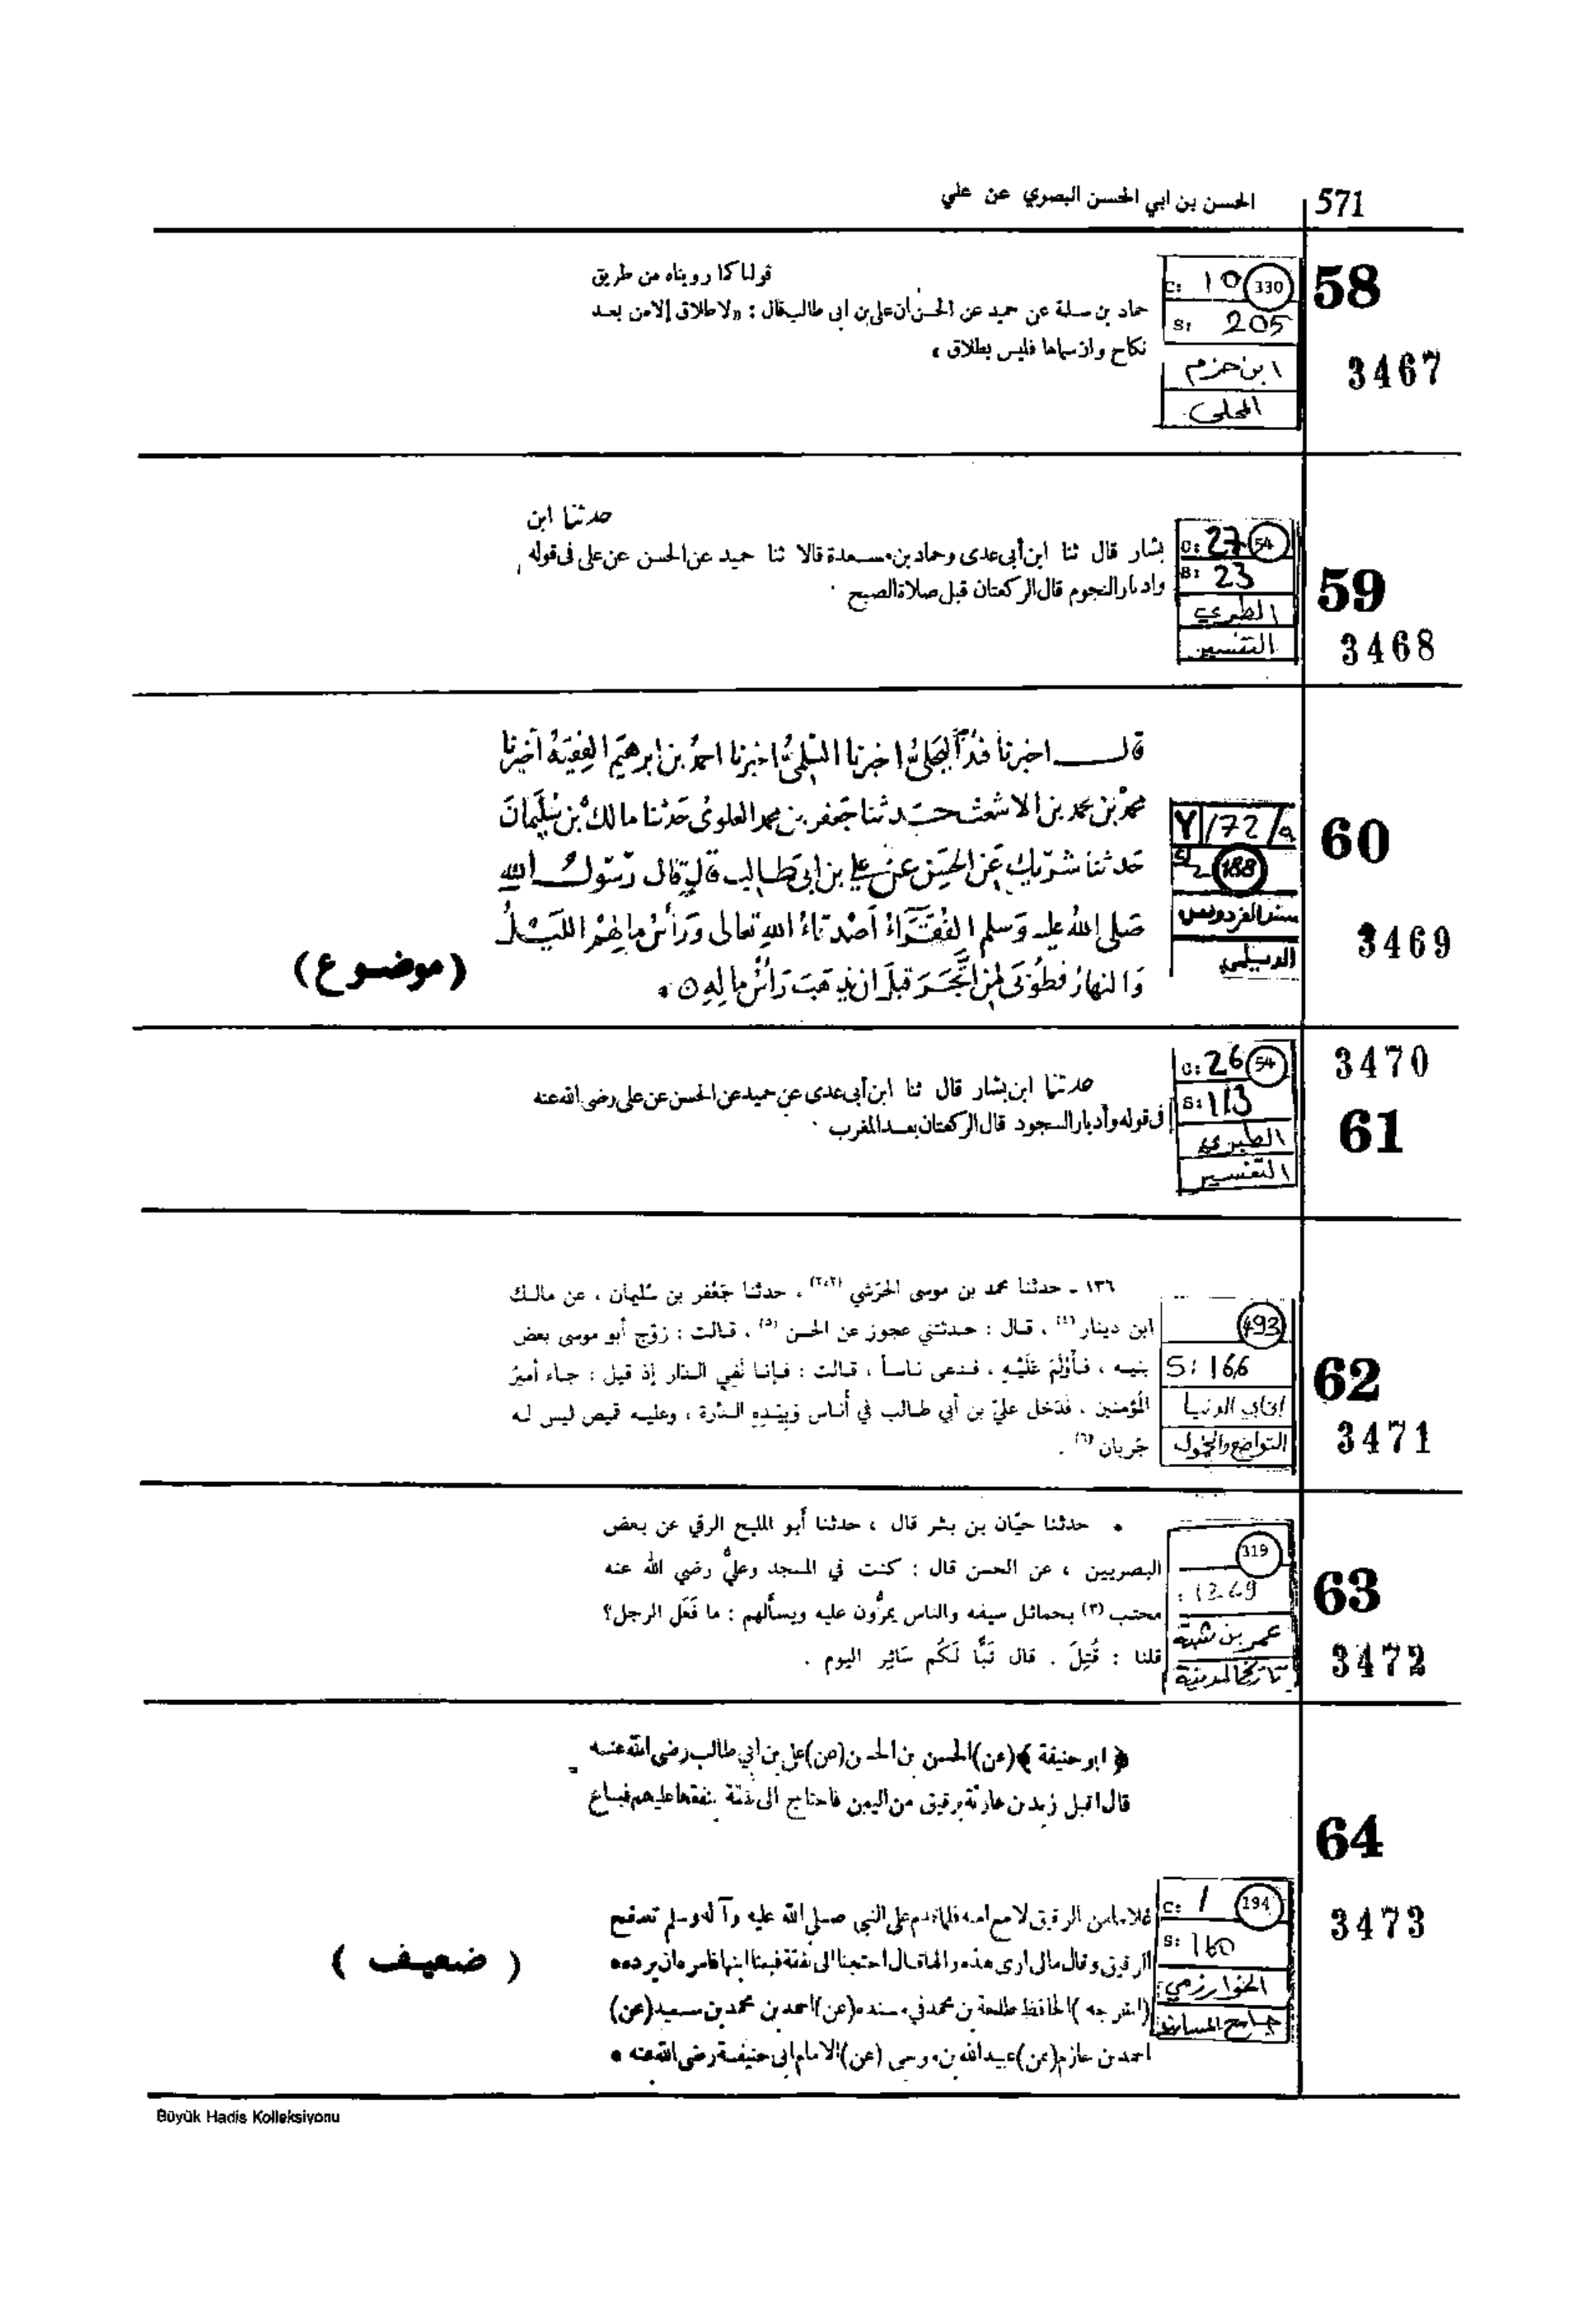 571
الحسن بن ابي الحسن البصري عن علي
58
C: 10 330
S: 205
ابن حزم
المحلى
3467
قولنا كما رويناه من طريق
حماد بن سلمة عن حميد عن الحسن أن على بن ابى طالب قال : «لا طلاق إلا من بعد
نكاح وان سماها فليس بطلاق»
59
C: 27 54
S: 23
الطبري
التفسير
3468
حدثنا ابن
بشار قال ثنا ابن أبى عدى وحماد بن مسعدة قالا ثنا حميد عن الحسن عن على فى قوله
وادبار النجوم قال الركعتان قبل صلاة الصبح
60
Y /72/a
188
مسند الفردوس
الديلمي
3469
قال اخبرنا البجلى اخبرنا السلمى اخبرنا احمد بن ابرهيم الفقيه اخبرنا
محمد بن محمد بن الاشعث حدثنا جعفر بن محمد العلوى حدثنا مالك بن سليمان
حدثنا شريك عن الحسن عن على بن ابى طالب قال قال رسول الله
صلى الله عليه وسلم الفقراء أصدقاء الله تعالى ورأس مالهم الليل
والنهار فطوبى لمن اتجر قبل ان يذهب رأس ماله
(موضوع)
3470
61
C: 26 54
S: 113
الطبري
التفسير
حدثنا ابن بشار قال ثنا ابن أبى عدى عن حميد عن الحسن عن على رضى الله عنه
فى قوله وأدبار السجود قال الركعتان بعد المغرب
62
493
S: 166
ابن ابي الدنيا
التواضع والخمول
3471
١٣٦ ـ حدثنا محمد بن موسى الحَرَشي (٢،٣) ، حدثنا جَعْفر بن سُليمان ، عن مالك
ابن دينار (٤) ، قال : حدثتني عجوز عن الحسن (٥) ، قالت : زوّج أبو موسى بعض
بنيه ، فأَوْلَمَ عَلَيْهِ ، فدعى ناساً ، قالت : فإنا لَفِي الدار إذ قيل : جاء أميرُ
المُؤمنين ، فدَخل عليّ بن أبي طالب في أُناس وَبِيَدِهِ الدِّرة ، وعليه قميص ليس له
جُربان (٦) .
63
319
: 1269
عمر بن شبة
تاريخ المدينة
3472
* حدثنا حيّان بن بشر قال ، حدثنا أبو المليح الرقي عن بعض
البصريين ، عن الحسن قال : كنت في المسجد وعليٌّ رضي الله عنه
محتب (٣) بحمائل سيفه والناس يمرُّون عليه ويسألهم : ما فَعَل الرجل؟
قلنا : قُتِلَ . قال تَبًّا لَكُم سَائِر اليوم .
64
C: 1 194
S: 160
الخوارزمي
جامع المسانيد
3473
﴿ ابو حنيفة ﴾ (عن) الحسن بن الحسن (عن) على بن أبي طالب رضى الله عنه
قال اقبل زيد بن حارثة برقيق من اليمن فاحتاج الى نفقة ينفقها عليهم فباع
غلاما من الرقيق لا مع امه فلما قدم على النبي صلى الله عليه وآله وسلم تصفح
الرقيق وقال مالى ارى هذه والهة قال احتجنا الى نفقة فبعنا ابنها فامره ان يرده *
(اخرجه) الحافظ طلحة بن محمد فى مسنده (عن) احمد بن محمد بن سعيد (عن)
احمد بن حازم (عن) عبيد الله بن موسى (عن) الامام ابى حنيفة رضى الله عنه *
( ضعيف )
Büyük Hadis Kolleksiyonu